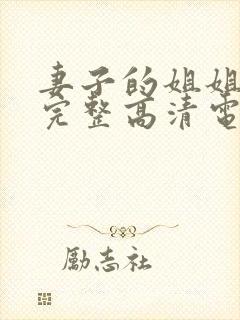 妻子的姐姐
完整高清電
励志社